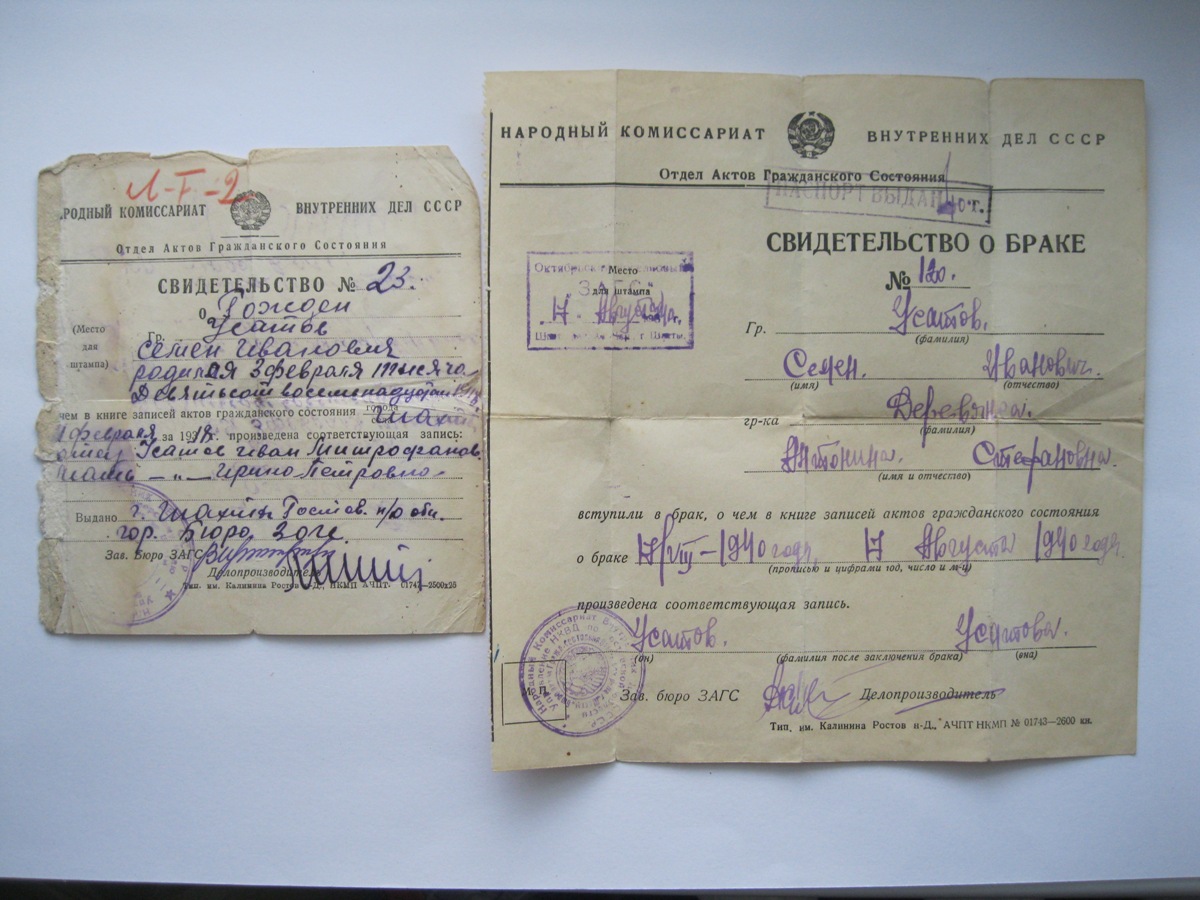 Л-Г-2
РОДНЫЙ КОМИССАРИАТ ВНУТРЕННИХ ДЕЛ СССР
Отдел Актов Гражданского Состояния
СВИДЕТЕЛЬСТВО № 23.
о Рожден
(Место для штампа)
Гр. Усатов
Семен Иванович
родился 3 февраля тысяча
Девятьсот восемнадцат
чем в книге записей актов гражданского состояния города Шахт
февраля за 1918 г. произведена соответствующая запись:
отец Усатов Иван Митрофанов
мать — „ — Ирина Петровна
Выдано г. Шахты Ростов. н/д обл.
гор. Бюро Загс.
Зав. Бюро ЗАГС
Делопроизводитель
Тип. им. Калинина Ростов н-Д., НКМП АЧПТ. 01747—2500х25
НАРОДНЫЙ КОМИССАРИАТ ВНУТРЕННИХ ДЕЛ СССР
Отдел Актов Гражданского Состояния
ПАСПОРТ ВЫДАН 40 г.
СВИДЕТЕЛЬСТВО О БРАКЕ
№ 120.
Место
для штампа
ЗАГС
17 Августа
Гр. Усатов.
(фамилия)
Семен. Иванович.
(имя) (отчество)
гр-ка Деревянка.
(фамилия)
Антонина. Стефановна.
(имя и отчество)
вступили в брак, о чем в книге записей актов гражданского состояния
о браке 17/VIII — 1940 года, 17 Августа 1940 года.
(прописью и цифрами год, число и м-ц)
произведена соответствующая запись.
Усатов. Усатова.
(он) (фамилия после заключения брака) (она)
М. П.
Зав. бюро ЗАГС Делопроизводитель
Тип. им. Калинина Ростов н-Д., АЧПТ НКМП № 01743—2600 кн.